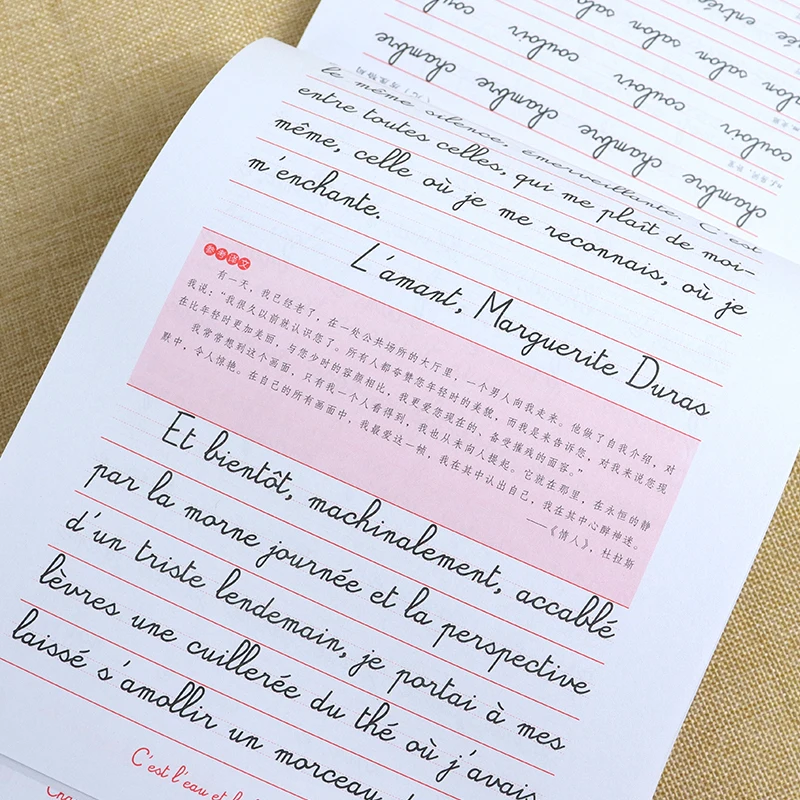 entrée
salon salon salon
couloir couloir couloir
chambre chambre chambre chambre
le même silence, émerveillante. C'est
entre toutes celles, qui me plaît de moi-
même, celle où je me reconnais, où je
m'enchante.
L'amant, Marguerite Duras
参考译文
有一天，我已经老了，在一处公共场所的大厅里，一个男人向我走来。他做了自我介绍，对
我说：“我很久以前就认识您了。所有人都夸赞您年轻时的美貌，而我是来告诉您，对我来说您现
在比年轻时更加美丽，与您少时的容颜相比，我更爱您现在的、备受摧残的面容。”
我常常想到这个画面，只有我一个人看得到，我也从未向人提起。它就在那里，在永恒的静
默中，令人惊艳。在自己的所有画面中，我最爱这一帧，我在其中认出自己，我在其中心醉神迷。
——《情人》，杜拉斯
Et bientôt, machinalement, accablé
par la morne journée et la perspective
d'un triste lendemain, je portai à mes
lèvres une cuillerée du thé où j'avais
laissé s'amollir un morceau
C'est l'eau et